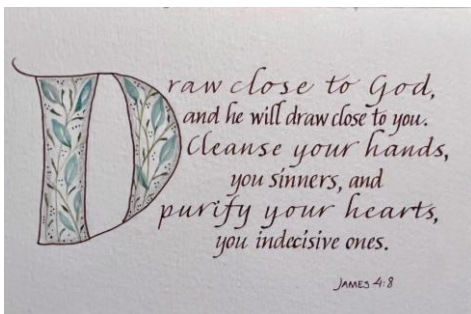 Draw close to God,
and he will draw close to you.
Cleanse your hands,
you sinners, and
purify your hearts,
you indecisive ones.
JAMES 4:8